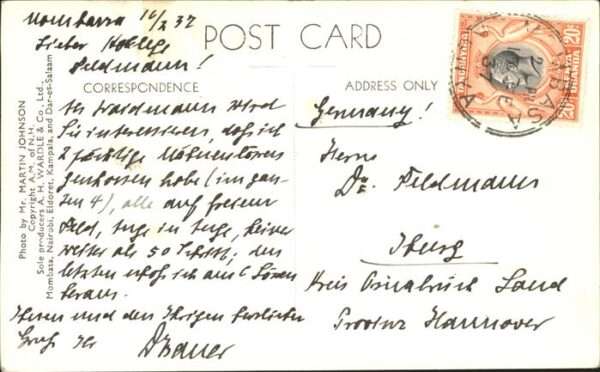 Mombassa 16/2 37
Lieber Kollege
Feldmann!
POST CARD
CORRESPONDENCE
ADDRESS ONLY
Als Waidmann wird
Sie interessieren, daß ich
2 Mähnenlöwen
geschossen habe (im gan-
zen 4), alle auf freiem
Feld, Auge in Auge, keiner
weiter als 50 Schritt; den
letzten schoß ich aus 6 Löwen
heraus.
Ihnen und den Ihrigen herzlichen
Gruß Ihr
Germany!
Herrn
Dr. Feldmann
Iburg
Kreis Osnabrück Land
Provinz Hannover
Photo by Mr. MARTIN JOHNSON
Copyright A.M. of N.H.
Sole producers A. H. WARDLE & Co., Ltd.,
Mombasa, Nairobi, Eldoret, Kampala, and Dar-es-Salaam
KENYA
UGANDA
20c
MOMBASA